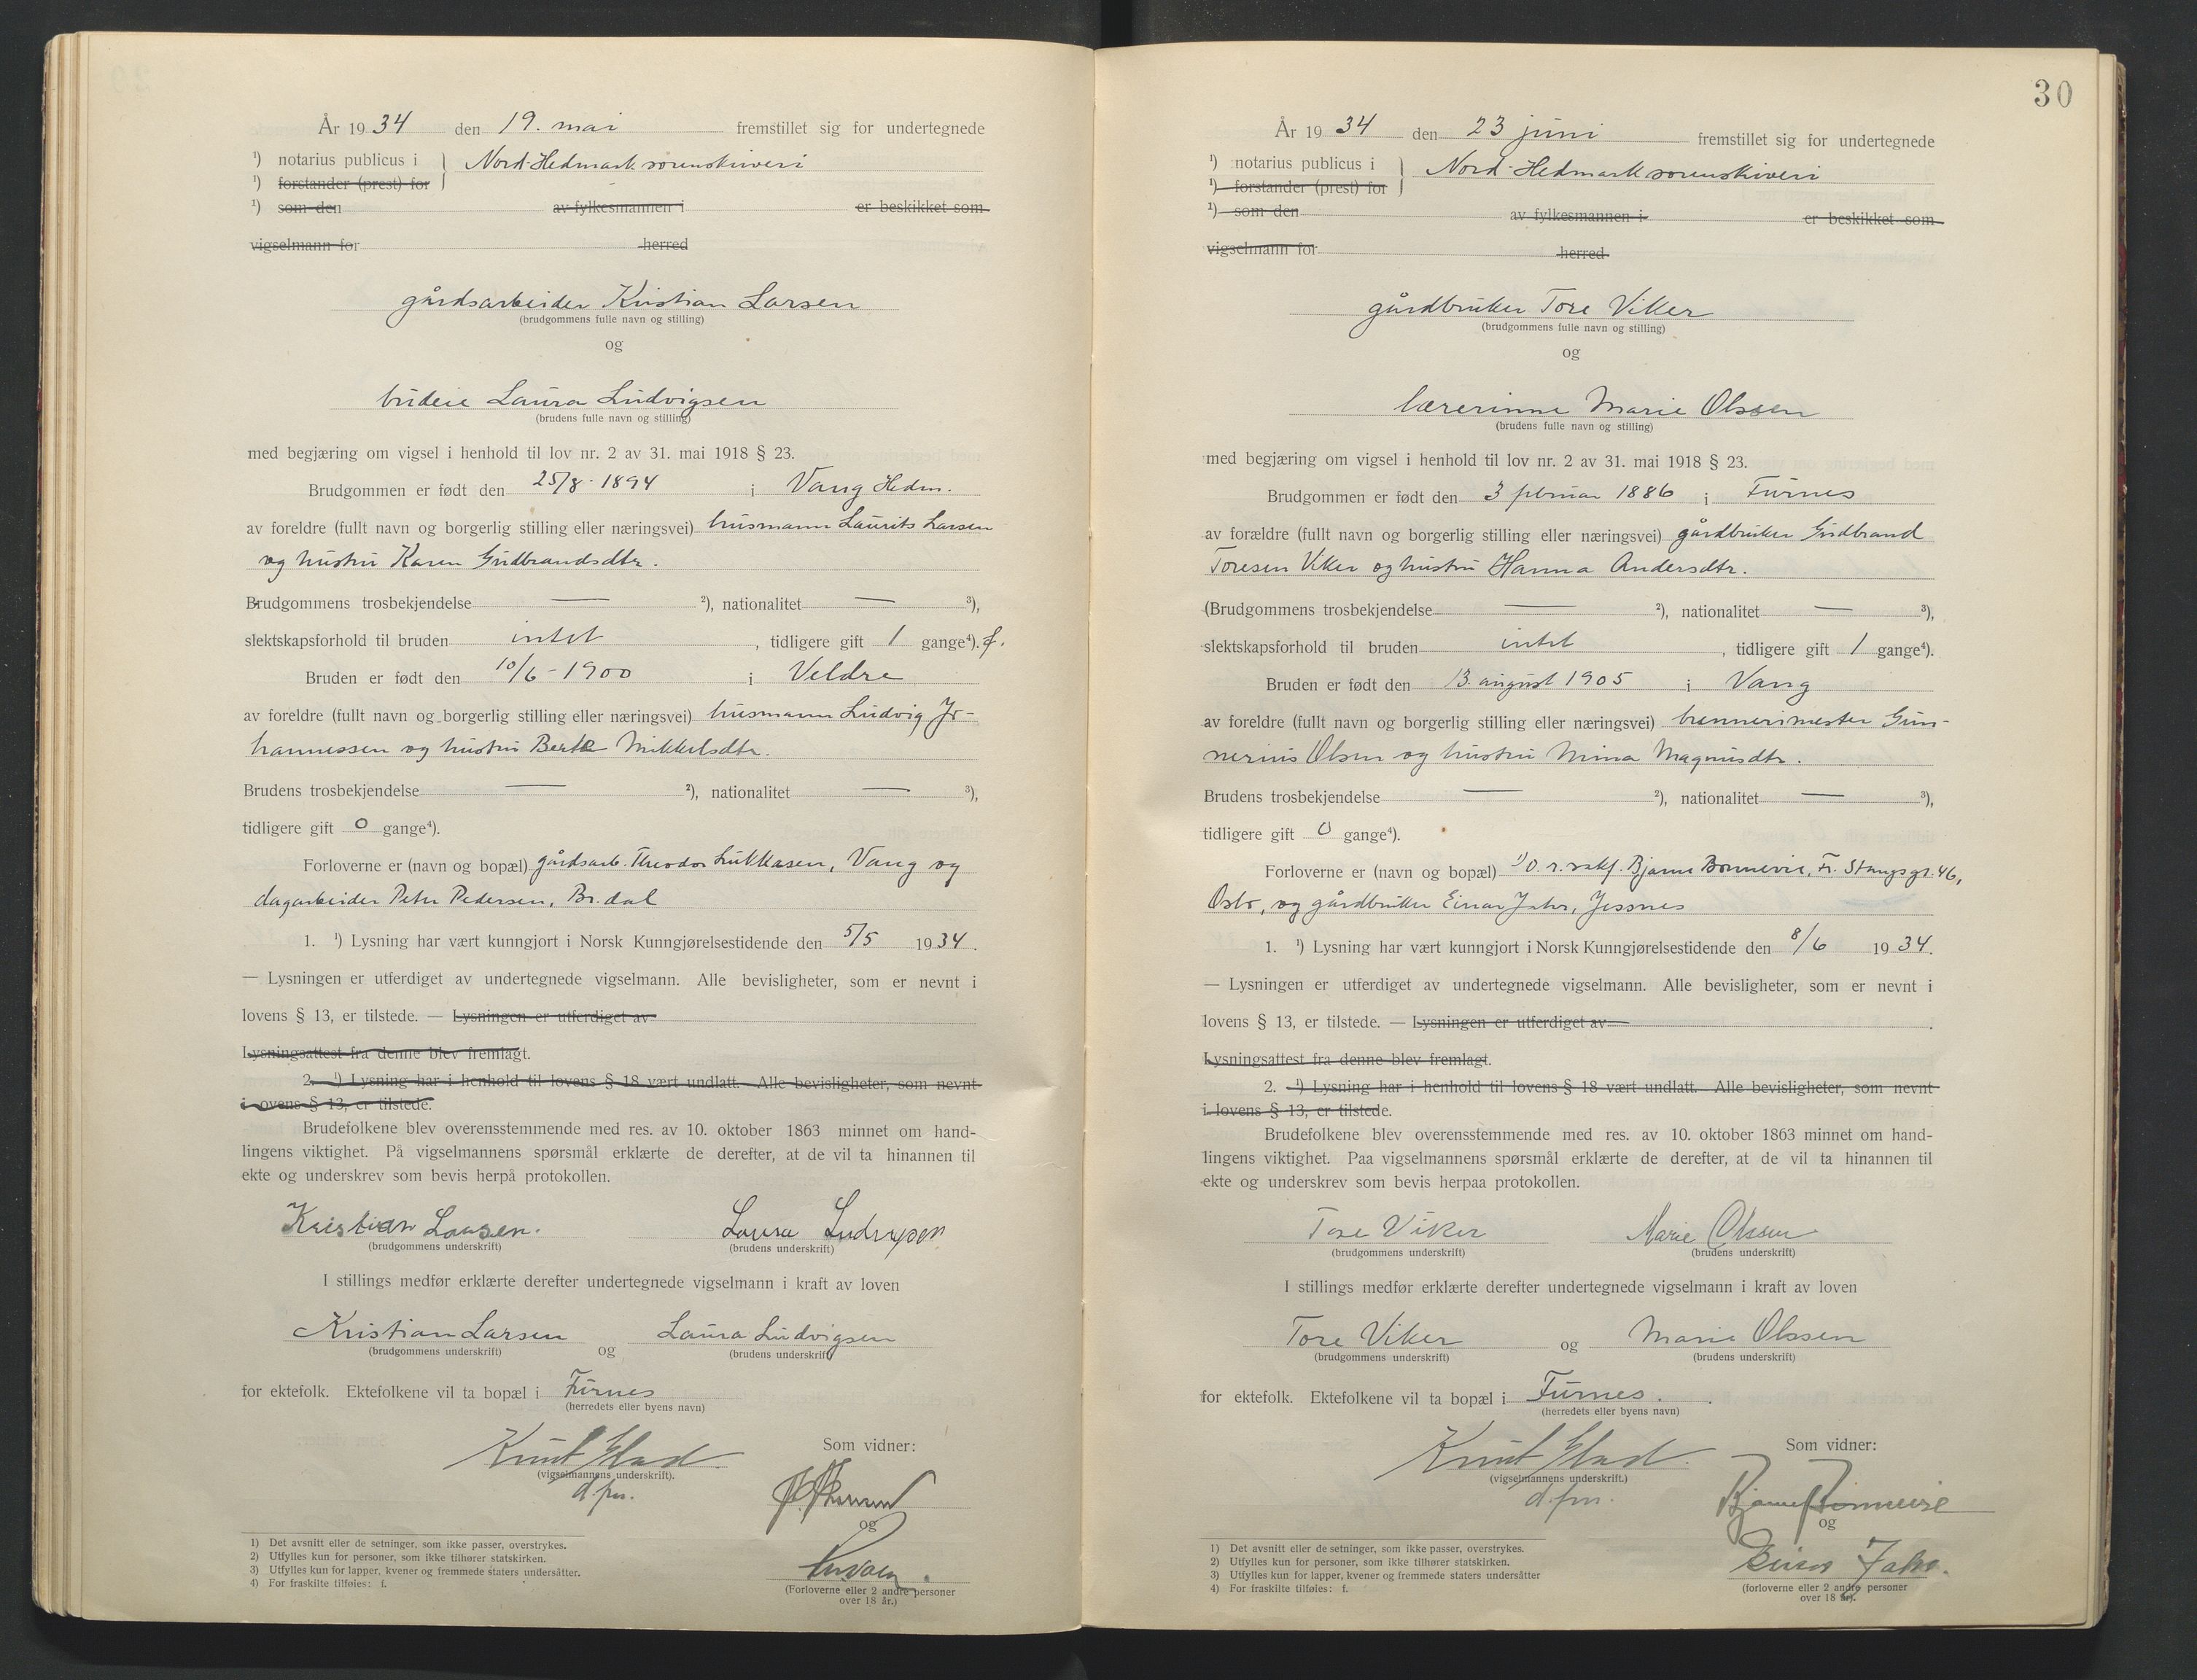 År 1934 den 19. mai fremstillet sig for undertegnede
¹) notarius publicus i } Nord-Hedmark sorenskriveri
¹) forstander (prest) for
¹) som den av fylkesmannen i er beskikket som
vigselmann for herred
gårdsarbeider Kristian Larsen
(brudgommens fulle navn og stilling)
og
budeie Laura Ludvigsen
(brudens fulle navn og stilling)
med begjæring om vigsel i henhold til lov nr. 2 av 31. mai 1918 § 23.
Brudgommen er født den 25/8-1894 i Vang Hedm.
av foreldre (fullt navn og borgerlig stilling eller næringsvei) husmann Laurits Larsen
og hustru Karen Gudbrandsdtr.
Brudgommens trosbekjendelse — ²), nationalitet — ³),
slektskapsforhold til bruden intet, tidligere gift 1 gange⁴). f.
Bruden er født den 10/6-1900 i Veldre
av foreldre (fullt navn og borgerlig stilling eller næringsvei) husmann Ludvig Jo-
hannessen og hustru Berte Mikkelsdtr.
Brudens trosbekjendelse — ²), nationalitet — ³),
tidligere gift 0 gange⁴).
Forloverne er (navn og bopæl) gårdsarb. Theodor Lukkasen, Vang og
dagarbeider Peter Pedersen, Br.dal
1. ¹) Lysning har vært kunngjort i Norsk Kunngjørelsestidende den 5/5 1934.
— Lysningen er utferdiget av undertegnede vigselmann. Alle bevisligheter, som er nevnt i
lovens § 13, er tilstede. — Lysningen er utferdiget av
Lysningsattest fra denne blev fremlagt.
2. ¹) Lysning har i henhold til lovens § 18 vært undlatt. Alle bevisligheter, som nevnt
i lovens § 13, er tilstede.
Brudefolkene blev overensstemmende med res. av 10. oktober 1863 minnet om hand-
lingens viktighet. På vigselmannens spørsmål erklærte de derefter, at de vil ta hinannen til
ekte og underskrev som bevis herpå protokollen.
Kristian Larsen. Laura Ludvigsen
(brudgommens underskrift) (brudens underskrift)
I stillings medfør erklærte derefter undertegnede vigselmann i kraft av loven
Kristian Larsen og Laura Ludvigsen
(brudgommens underskrift) (brudens underskrift)
for ektefolk. Ektefolkene vil ta bopæl i Furnes
(herredets eller byens navn)
Knut Glad Som vidner:
(vigselmannens underskrift).
d.fm.
og
(Forloverne eller 2 andre personer
over 18 år.)
1) Det avsnitt eller de setninger, som ikke passer, overstrykes.
2) Utfylles kun for personer, som ikke tilhører statskirken.
3) Utfylles kun for lapper, kvener og fremmede staters undersåtter.
4) For fraskilte tilføies: f.
30
År 1934 den 23 juni fremstillet sig for undertegnede
¹) notarius publicus i } Nord-Hedmark sorenskriveri
¹) forstander (prest) for
¹) som den av fylkesmannen i er beskikket som
vigselmann for herred
gårdbruker Tore Viker
(brudgommens fulle navn og stilling)
og
lærerinne Marie Olssen
(brudens fulle navn og stilling)
med begjæring om vigsel i henhold til lov nr. 2 av 31. mai 1918 § 23.
Brudgommen er født den 3 februar 1886 i Furnes
av forældre (fullt navn og borgerlig stilling eller næringsvei) gårdbruker Gudbrand
Toresen Viker og hustru Hanna Andersdtr.
(Brudgommens trosbekjendelse — ²), nationalitet — ³),
slektskapsforhold til bruden intet, tidligere gift 1 gange⁴).
Bruden er født den 13. august 1905 i Vang
av foreldre (fullt navn og borgerlig stilling eller næringsvei) brennerimester Gun-
nerius Olsen og hustru Mina Magnusdtr.
Brudens trosbekjendelse — ²), nationalitet — ³),
tidligere gift 0 gange⁴).
Forloverne er (navn og bopæl) O.r.sakf. Bjarne Bonnevie, Fr. Stangsgt. 46,
Oslo, og gårdbruker Einar Jahr, Jessnes
1. ¹) Lysning har vært kunngjort i Norsk Kunngjørelsestidende den 8/6 1934.
— Lysningen er utferdiget av undertegnede vigselmann. Alle bevisligheter, som er nevnt i
lovens § 13, er tilstede. — Lysningen er utferdiget av
Lysningsattest fra denne blev fremlagt.
2. ¹) Lysning har i henhold til lovens § 18 vært undlatt. Alle bevisligheter, som nevnt
i lovens § 13, er tilstede.
Brudefolkene blev overensstemmende med res. av 10. oktober 1863 minnet om hand-
lingens viktighet. Paa vigselmannens spørsmål erklærte de derefter, at de vil ta hinannen til
ekte og underskrev som bevis herpaa protokollen.
Tore Viker Marie Olssen
(brudgommens underskrift) (brudens underskrift)
I stillings medfør erklærte derefter undertegnede vigselmann i kraft av loven
Tore Viker og Marie Olssen
(brudgommens underskrift) (brudens underskrift)
for ektefolk. Ektefolkene vil ta bopæl i Furnes.
(herredets eller byens navn)
Knut Glad. Som vidner:
(vigselmannens underskrift.)
d.fm. Bjarne Bonnevie
og
Einar Jahr.
(forloverne eller 2 andre personer
over 18 år).
1) Det avsnitt eller de setninger, som ikke passer, overstrykes.
2) Utfylles kun for personer, som ikke tilhører statskirken.
3) Utfylles kun for lapper, kvener og fremmede staters undersåtter
4) For fraskilte tilføies: f.